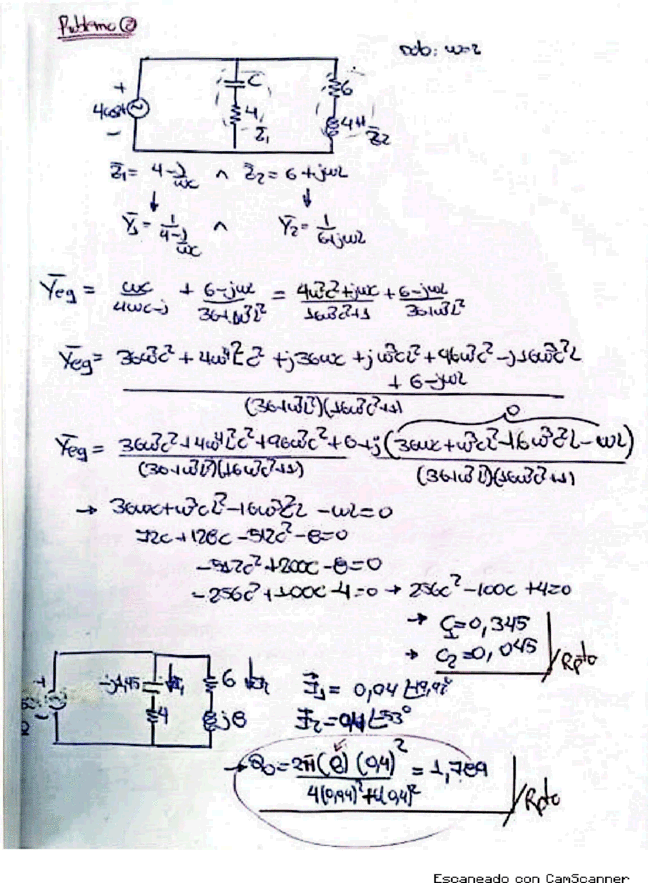 Problema ②
Dato: ω=2
C
6
4cos2t
4
4H
Z̄1
Z̄2
Z̄1 = 4-j/ωc ∧ Z̄2 = 6+jωL
Ȳ1 = 1/(4-j/ωc) ∧ Ȳ2 = 1/(6+jωL)
Ȳeq = ωc/(4ωc-j) + (6-jωL)/(36+ω²L²) = (4ω²c²+jωc)/(16ω²c²+1) + (6-jωL)/(36+ω²L²)
Ȳeq = (36ω²c² + 4ω⁴L²c² + j36ωc + jω³cL² + 96ω²c² - j16ω³c²L + 6-jωL)/((36+ω²L²)(16ω²c²+1))
0
Ȳeq = (36ω²c²+4ω⁴L²c²+96ω²c²+6)/((36+ω²L²)(16ω²c²+1)) + j(36ωc+ω³cL²-16ω³c²L-ωL)/((36+ω²L²)(16ω²c²+1))
→ 36ωc+ω³cL²-16ω³c²L-ωL=0
72c+128c-512c²-8=0
-512c²+200c-8=0
-256c²+100c-4=0 → 256c²-100c+4=0
→ C1=0,345
→ C2=0,045
Rpta
-j1,45
4
I1
6
j8
I2
I⃗1 = 0,94 ∠19,92°
I⃗2 = 0,4 ∠-53°
→ Q0 = 2π(8)(0,4)²/(4(0,94)²+6(0,4)²) = 1,789
Rpta
Escaneado con CamScanner